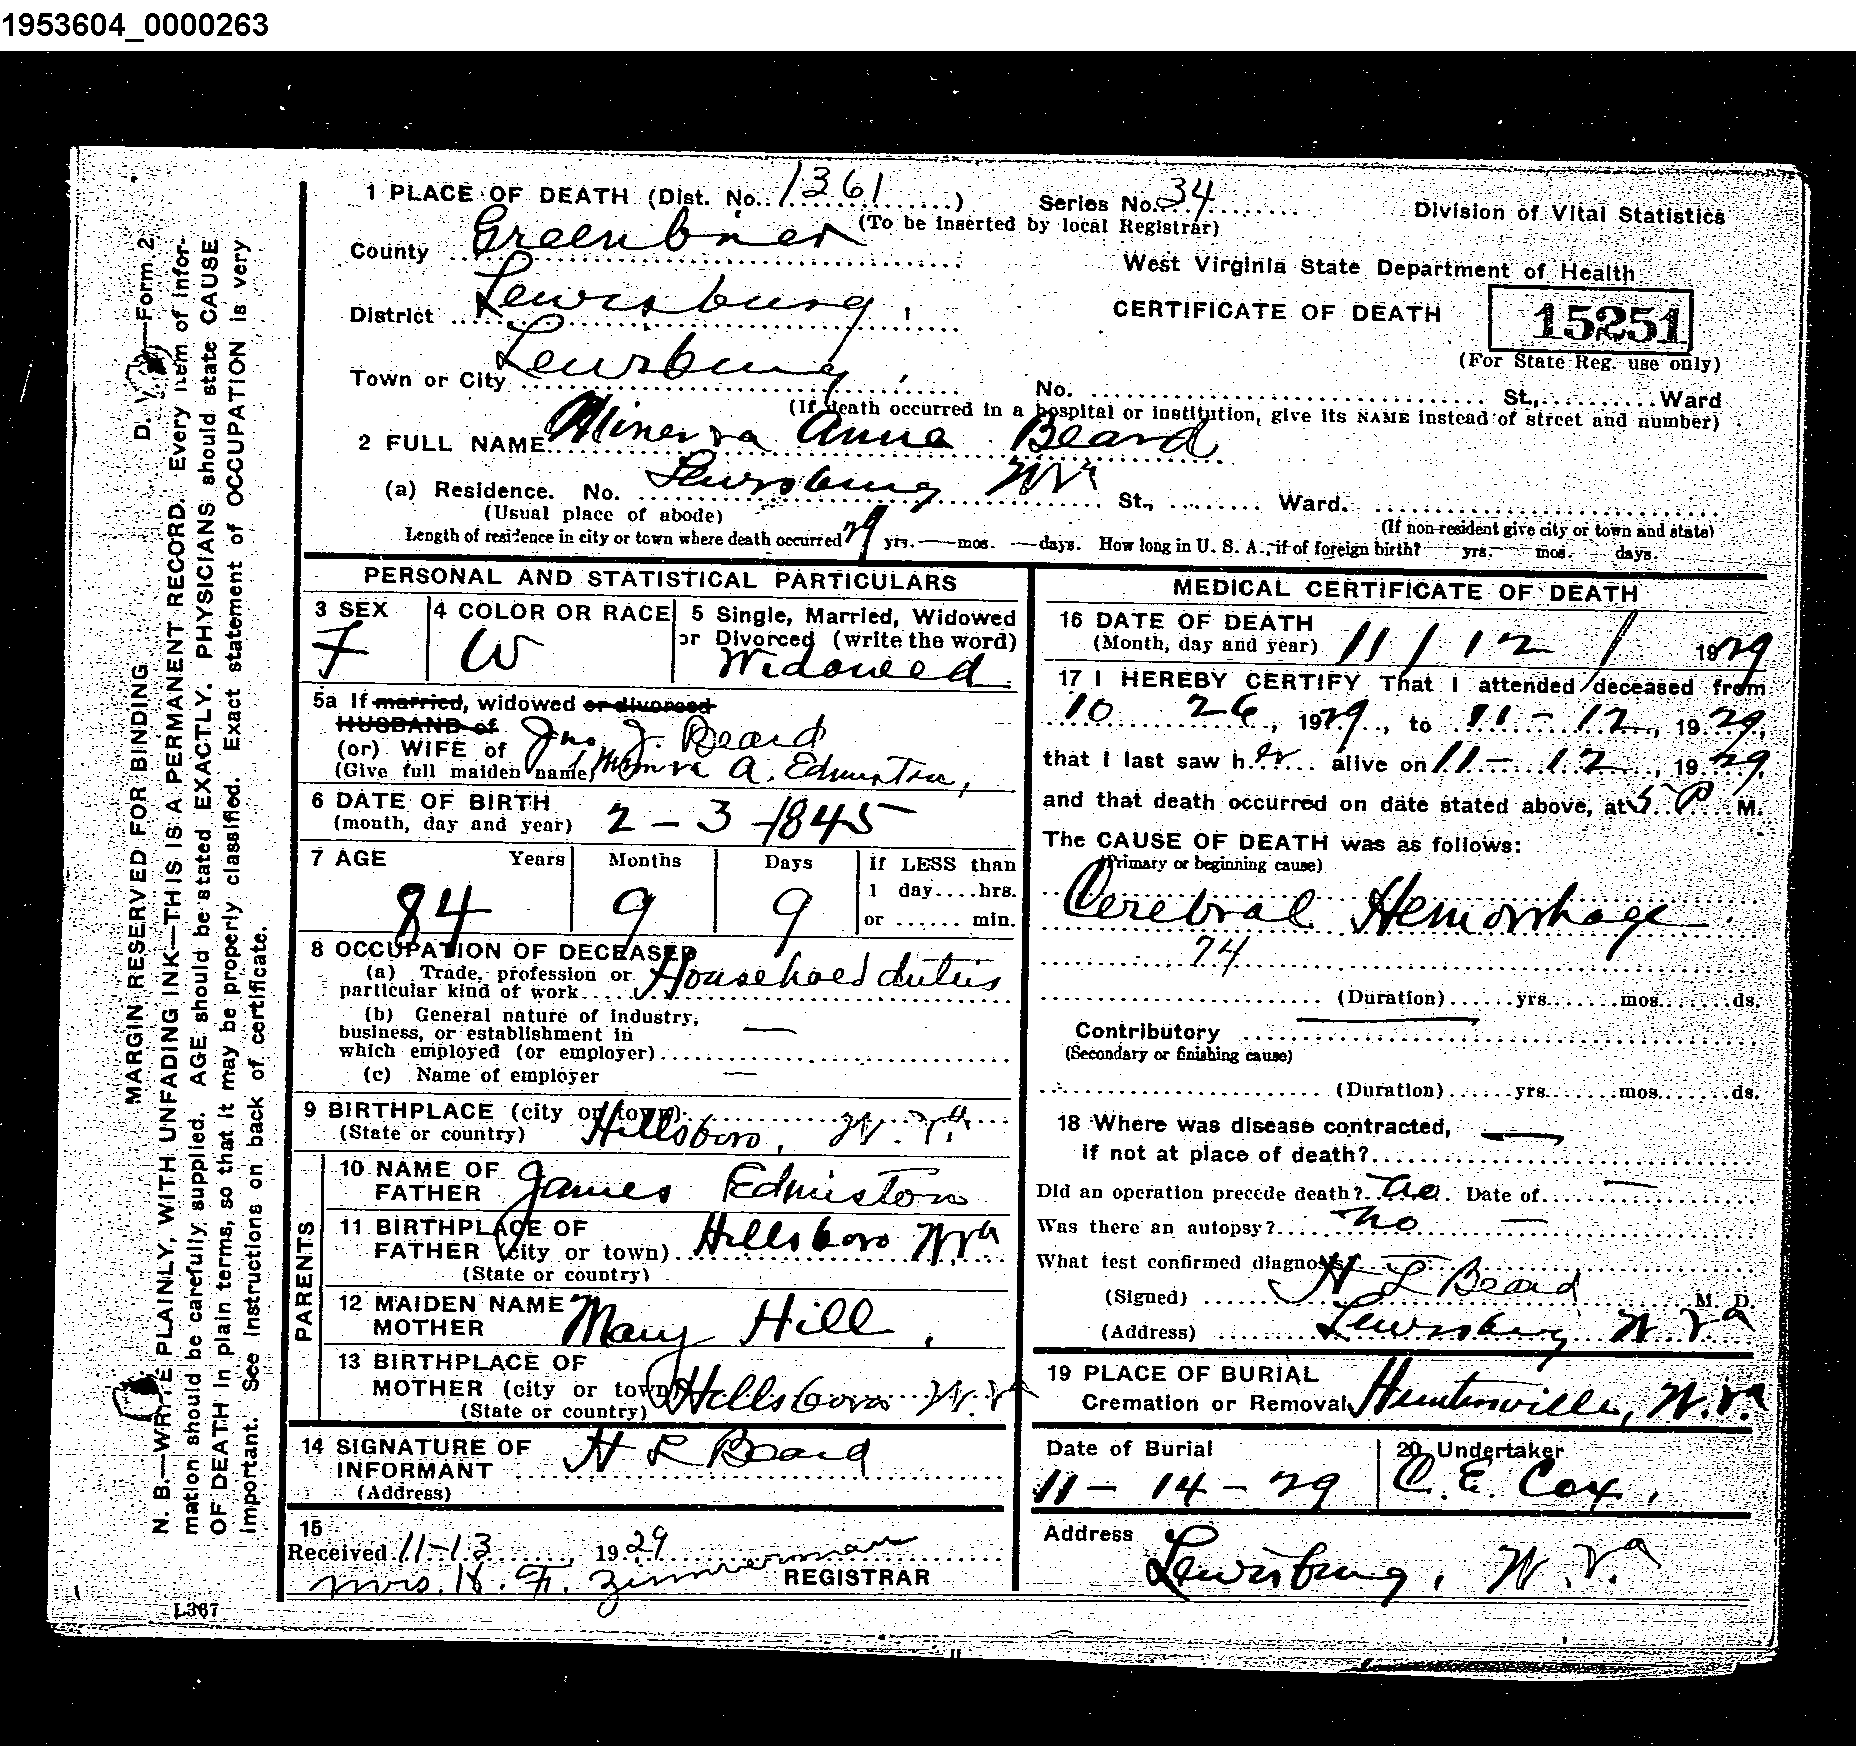 1953604_0000263
1 PLACE OF DEATH (Dist. No. 1361 ) Series No. 34
(To be inserted by local Registrar)
Division of Vital Statistics
County Greenbrier
West Virginia State Department of Health
District Lewisburg
CERTIFICATE OF DEATH 15251
(For State Reg. use only)
Town or City Lewisburg
No. St., Ward
(If death occurred in a hospital or institution, give its NAME instead of street and number)
2 FULL NAME Minerva Anna Beard
(a) Residence. No. Lewisburg WVa St., Ward.
(Usual place of abode) (If non-resident give city or town and state)
Length of residence in city or town where death occurred 29 yrs. — mos. — days. How long in U. S. A., if of foreign birth? — yrs. — mos. days.
PERSONAL AND STATISTICAL PARTICULARS
3 SEX F
4 COLOR OR RACE W
5 Single, Married, Widowed
or Divorced (write the word)
Widowed
5a If married, widowed or divorced
HUSBAND of
(or) WIFE of Jno. J. Beard
(Give full maiden name) A. Edmiston,
6 DATE OF BIRTH
(month, day and year) 2 - 3 - 1845
7 AGE Years Months Days if LESS than
1 day....hrs.
84 9 9 or ...... min.
8 OCCUPATION OF DECEASED
(a) Trade, profession or
particular kind of work Household duties
(b) General nature of industry,
business, or establishment in
which employed (or employer) —
(c) Name of employer —
9 BIRTHPLACE (city or town)
(State or country) Hillsboro, W. Va
PARENTS
10 NAME OF
FATHER James Edmiston
11 BIRTHPLACE OF
FATHER (city or town) Hillsboro WVa
(State or country)
12 MAIDEN NAME
MOTHER Mary Hill
13 BIRTHPLACE OF
MOTHER (city or town) Hillsboro W. Va
(State or country)
14 SIGNATURE OF
INFORMANT H L Beard
(Address)
15
Received 11-13 1929
Mrs. H. F. Zimmerman
REGISTRAR
L367
MEDICAL CERTIFICATE OF DEATH
16 DATE OF DEATH
(Month, day and year) 11 / 12 / 1929
17 I HEREBY CERTIFY That I attended deceased from
10 26, 1929, to 11 - 12, 1929,
that I last saw her alive on 11 - 12, 1929,
and that death occurred on date stated above, at 5 P M.
The CAUSE OF DEATH was as follows:
(Primary or beginning cause)
Cerebral Hemorrhage
74
(Duration) yrs. mos. ds.
Contributory —
(Secondary or finishing cause)
(Duration) yrs. mos. ds.
18 Where was disease contracted,
if not at place of death? —
Did an operation precede death? no. Date of —
Was there an autopsy? no —
What test confirmed diagnosis
(Signed) H L Beard M. D.
(Address) Lewisburg W. Va
19 PLACE OF BURIAL
Cremation or Removal Huntersville, W. Va.
Date of Burial
11 - 14 - 29
20 Undertaker
C. E. Cox,
Address
Lewisburg, W. Va.
D. V.—Form 2
MARGIN RESERVED FOR BINDING
N. B.—WRITE PLAINLY, WITH UNFADING INK—THIS IS A PERMANENT RECORD. Every item of infor-
mation should be carefully supplied. AGE should be stated EXACTLY. PHYSICIANS should state CAUSE
OF DEATH in plain terms, so that it may be properly classified. Exact statement of OCCUPATION is very
important. See instructions on back of certificate.